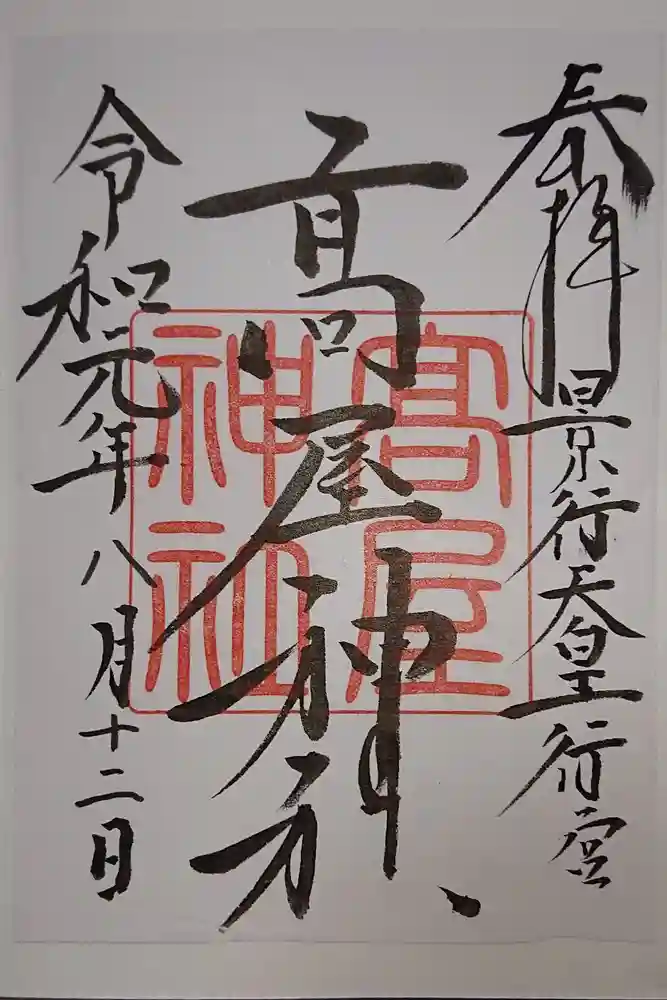 奉拝
景行天皇行宮
髙屋神社
髙屋
神社
令和元年八月十二日